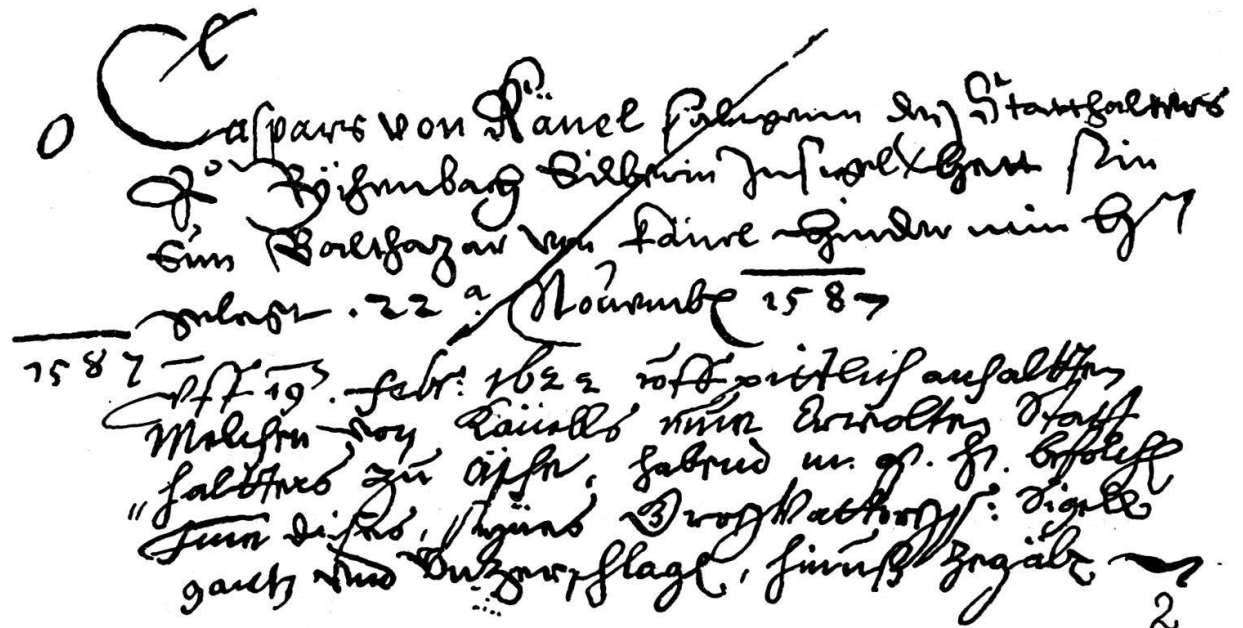 Caspars von Känel säligenn des Statthalters
Zů Rÿchenbach Silberin Insigel hatt sin
Sun Balthazar von Känel hinder min H
gelegt . 22 a Nouemb 1587
1587
Uff 19 . Febr: 1622 uff pittlich anhaltten
Melchen von Känells nüw Erwolten Statt
"haltters zu Äsche, habend m. g. h. befolchen
Ime dises, sÿnes Großvatters s: Sigell
gantz und Unzerschlagen, hinuß zegäben
2